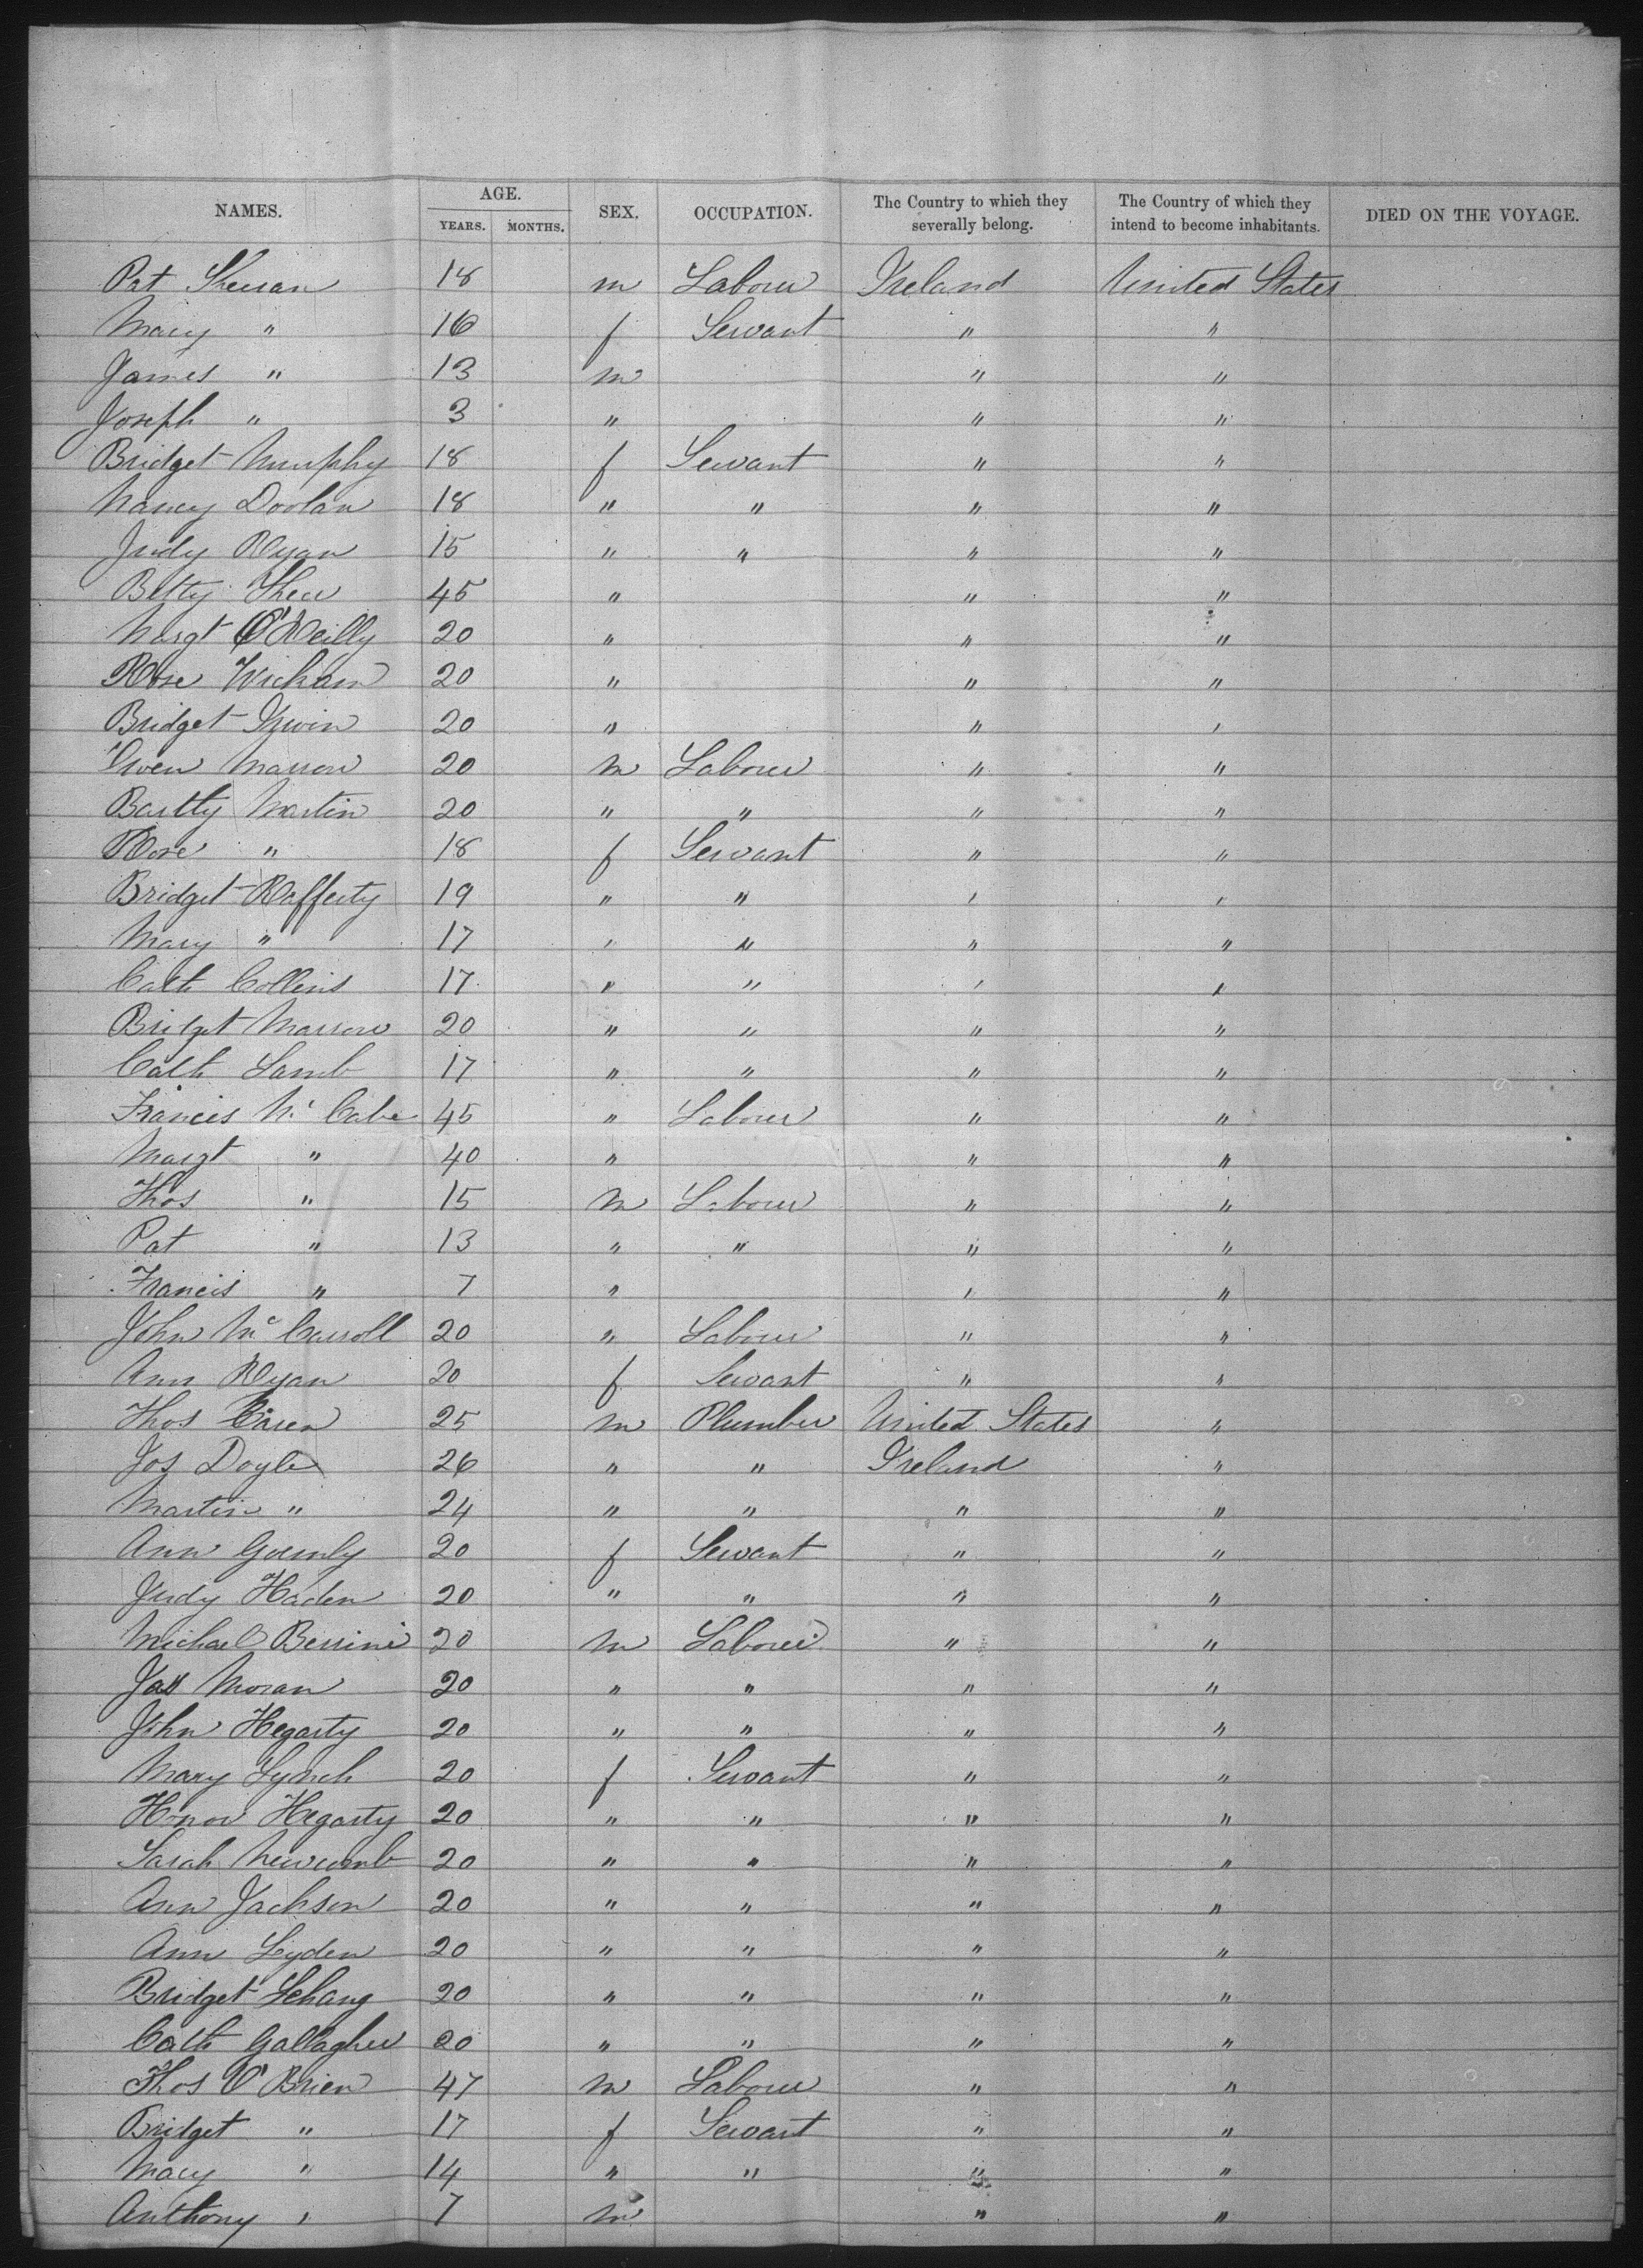 NAMES. AGE. SEX. OCCUPATION. The Country to which they severally belong. The Country of which they intend to become inhabitants. DIED ON THE VOYAGE.
YEARS. MONTHS.
Pat 18 m Labour Ireland United States
Mary " 16 f Servant " "
James " 13 m " "
Joseph " 3 " " "
Bridget Murphy 18 f Servant " "
Nancy Doolan 18 " " " "
Judy Ryan 15 " " " "
Betty Shea 45 " " "
Margt O'Reilly 20 " " "
Rose Wickam 20 " " "
Bridget Irwin 20 " " "
Owen Marron 20 m Labour " "
Bartly Martin 20 " " " "
Rose " 18 f Servant " "
Bridget Rafferty 19 " " " "
Mary " 17 " " " "
Cath Collins 17 " " " "
Bridget Marron 20 " " " "
Cath Lamb 17 " " " "
Francis Mc Cabe 45 " Labour " "
Margt " 40 " " "
Thos " 15 m Labour " "
Pat " 13 " " " "
Francis " 7 " " "
John Mc Carroll 20 " Labour " "
Ann Ryan 20 f Servant " "
Thos 25 m Plumber United States "
Jos Doyle 26 " " Ireland "
Martin " 24 " " " "
Ann Gormly 20 f Servant " "
Judy Haden 20 " " " "
Michael 20 m Labour " "
Jas Moran 20 " " " "
John Hegarty 20 " " " "
Mary Lynch 20 f Servant " "
Honor Hegarty 20 " " " "
Sarah Newcomb 20 " " " "
Ann Jackson 20 " " " "
Ann Lyden 20 " " " "
Bridget Lehany 20 " " " "
Cath Gallagher 20 " " " "
Thos O'Brien 47 m Labour " "
Bridget " 17 f Servant " "
Mary " 14 " " " "
Anthony " 7 m " "